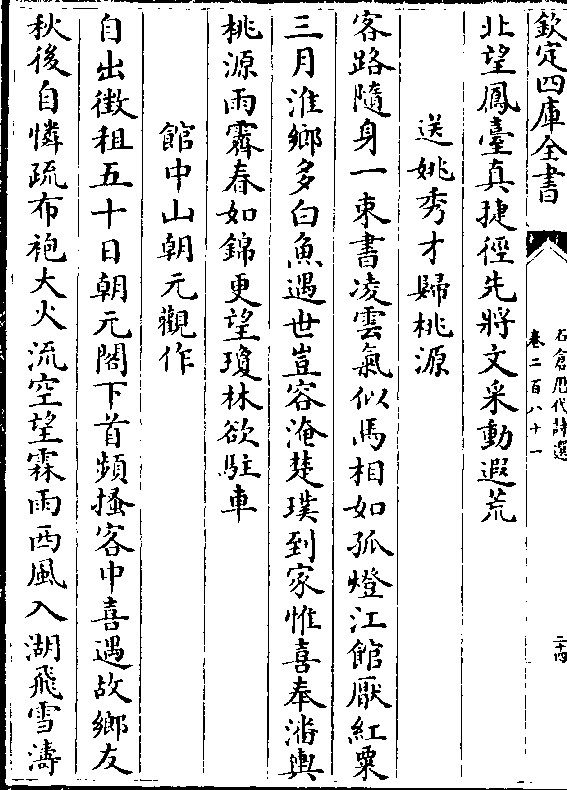 欽定四庫全書
石倉歷代詩選
卷二百八十一
二十四
北望鳳臺真捷徑先將文采動遐荒
送姚秀才歸桃源
客路隨身一束書凌雲氣似馬相如孤燈江館厭紅粟
三月淮鄉多白魚遇世豈容淹楚璞到家惟喜奉潘輿
桃源雨霽春如錦更望瓊林欲駐車
館中山朝元觀作
自出徴租五十日朝元閣下首頻搔客中喜遇故鄉友
秋後自憐疏布袍大火流空望霖雨西風入湖飛雪濤